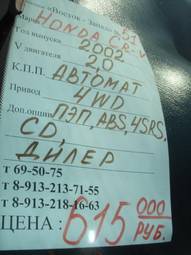 «Восток - Запад» 51
Марка HONDA CR-V
Год выпуска 2002
V двигателя 2,0
К.П.П. АВТОМАТ
Привод 4WD
Доп.опции ПЭП, ABS, 4SRS,
CD,
ДИЛЕР
т 69-50-75
т 8-913-213-71-55
т 8-913-218-16-63
ЦЕНА : 615 000 РУБ.